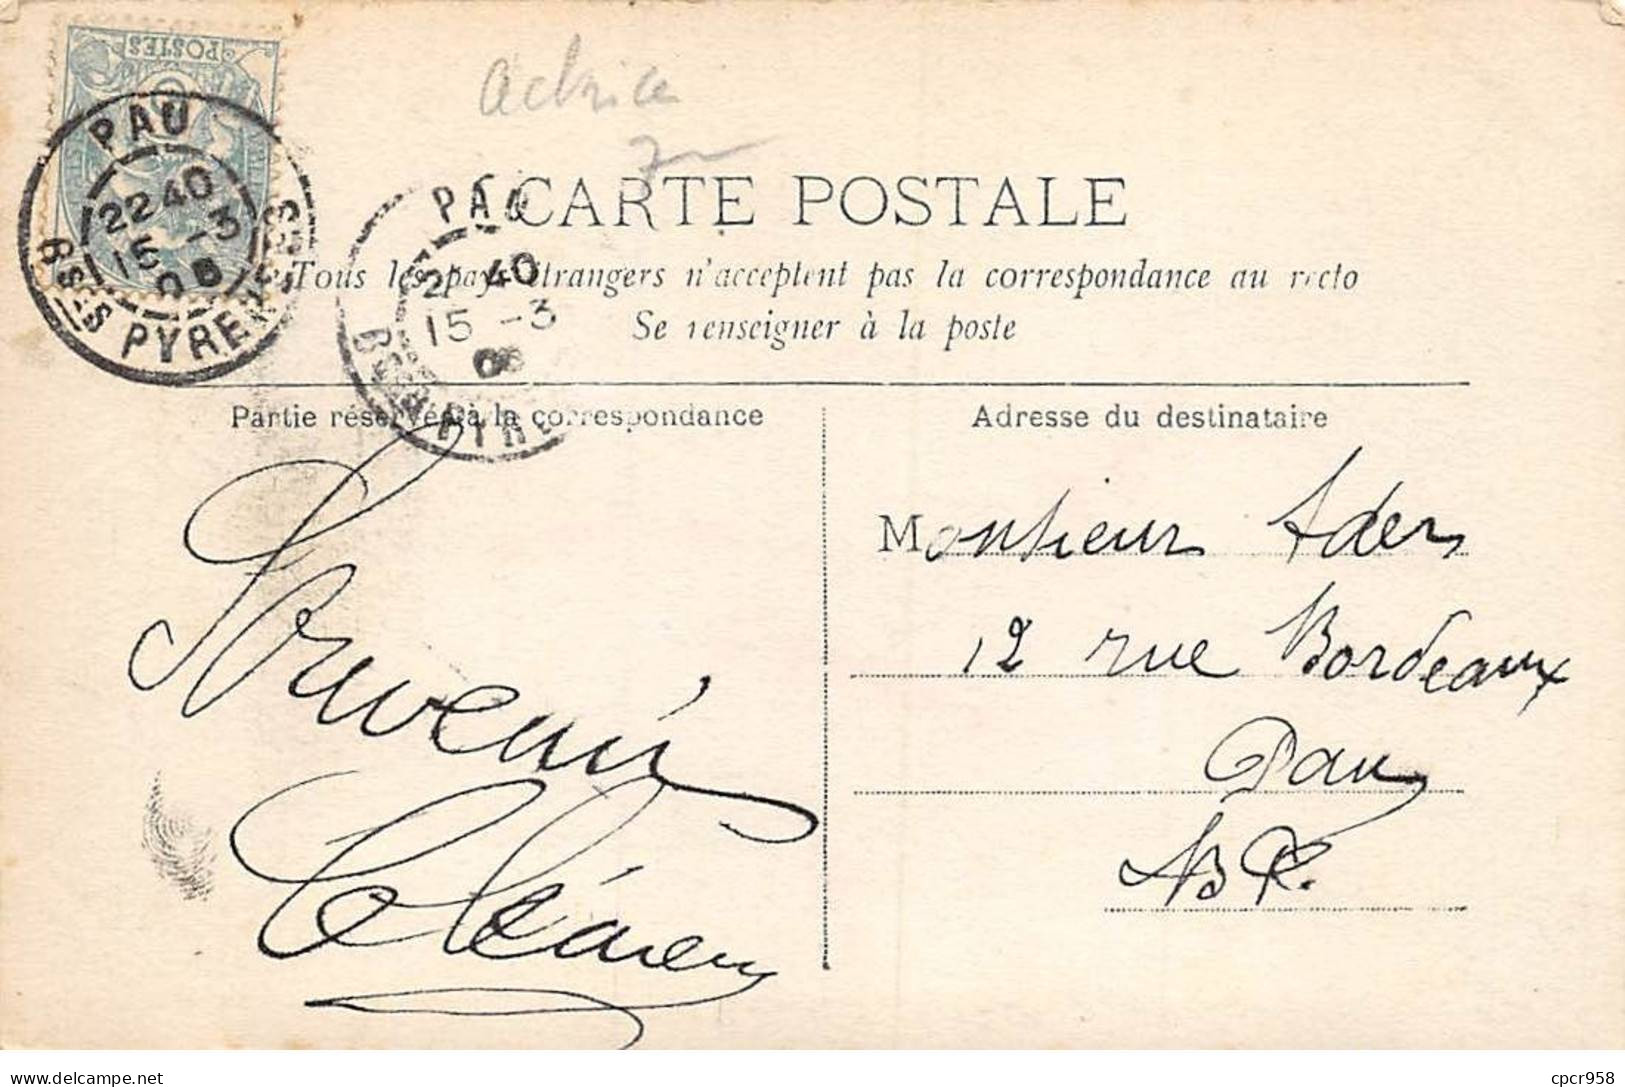 POSTES
PAU
22 40
15 -3
06
BSES PYRENEES
actrice
7
PAU
40
15 -3
06
CARTE POSTALE
Tous les pays étrangers n'acceptent pas la correspondance au recto
Se renseigner à la poste
Partie réservée à la correspondance
Adresse du destinataire
Souvenir
Monsieur Ader
12 rue Bordeaux
Pau
B P.
delcampe.net
cpcr958